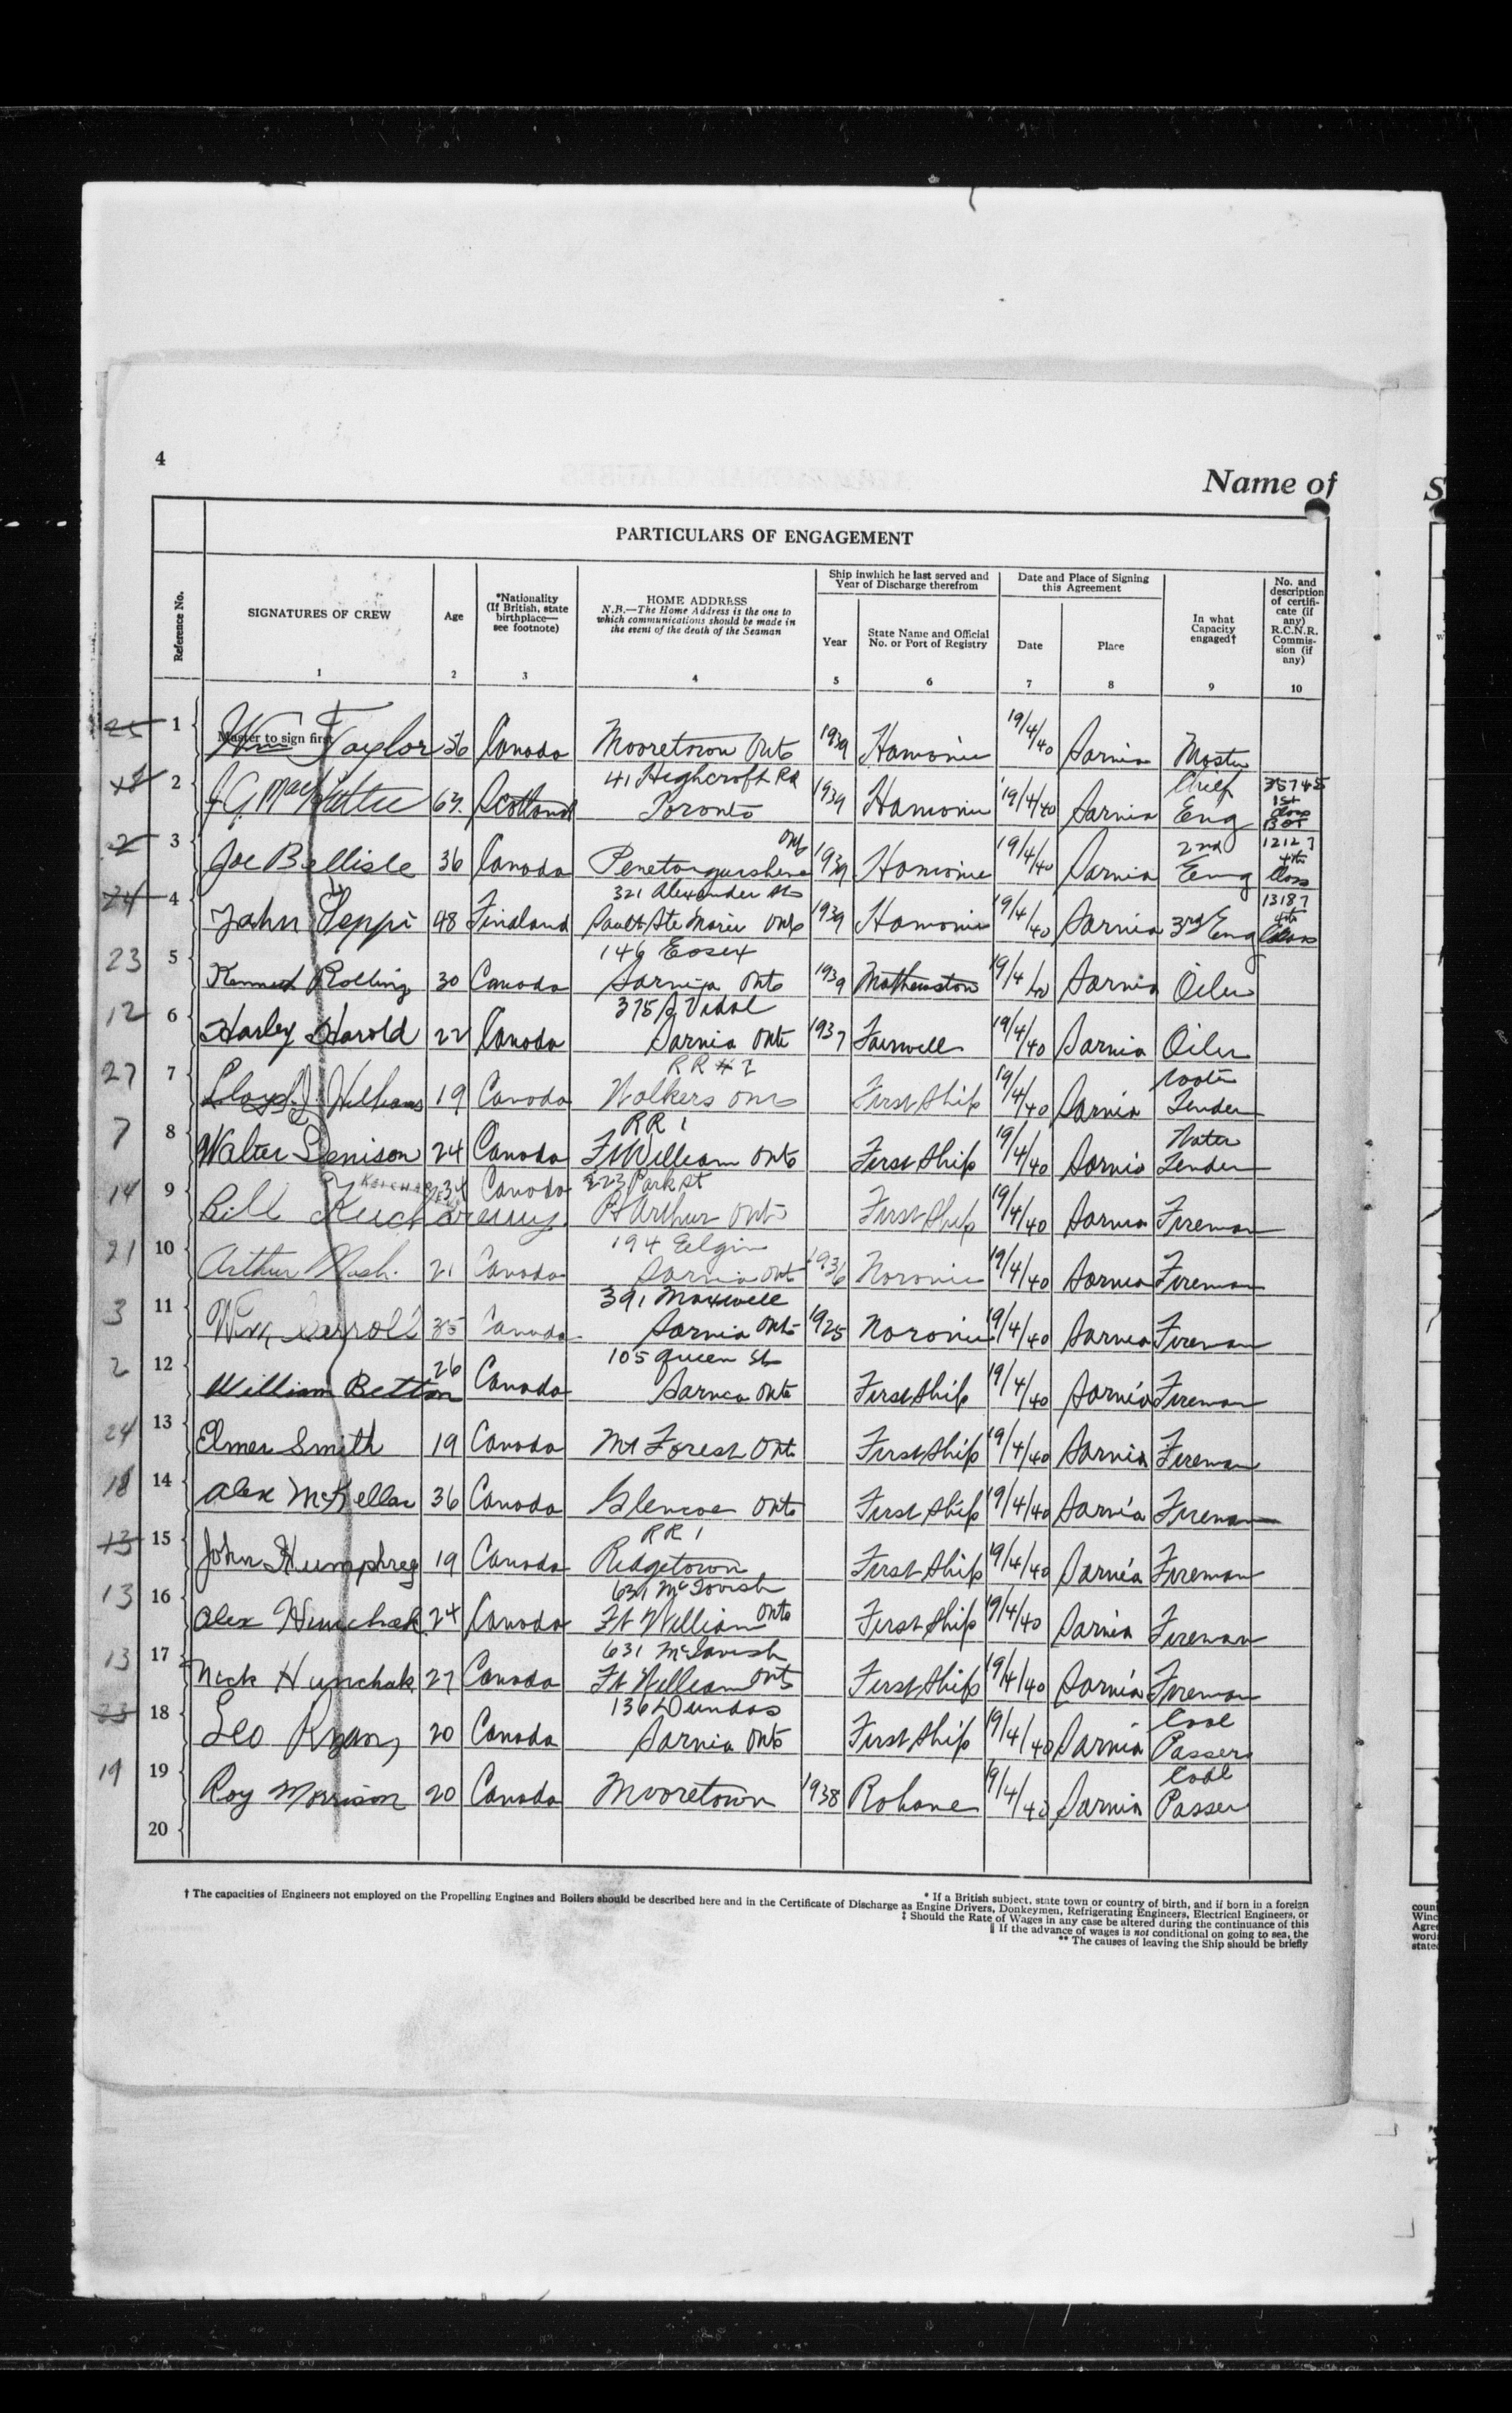 4
Name of
S
PARTICULARS OF ENGAGEMENT
Reference No.
SIGNATURES OF CREW
1
Age
2
*Nationality (If British, state birthplace— see footnote)
3
HOME ADDRESS
N.B.—The Home Address is the one to which communications should be made in the event of the death of the Seaman
4
Ship inwhich he last served and Year of Discharge therefrom
Year
5
State Name and Official No. or Port of Registry
6
Date and Place of Signing this Agreement
Date
7
Place
8
In what Capacity engaged†
9
No. and description of certificate (if any) R.C.N.R. Commission (if any)
10
25 1 Master to sign first Wm Taylor 56 Canada Mooretown Ont 1939 Hamonic 19/4/40 Sarnia Master
2 J.G. 63 Scotland 41 Highcroft Rd Toronto 1939 Hamonic 19/4/40 Sarnia Chief Eng 35745 1st Class BOT
2 3 Joe Bellisle 36 Canada Penetanguishene Ont 1939 Hamonic 19/4/40 Sarnia 2nd Eng 12127 4th Class
24 4 John Teppi 48 Finland 321 Alexander St Sault Ste Marie Ont 1939 Hamonic 19/4/40 Sarnia 3rd Eng 13187 4th Class
23 5 Kenneth Rolling 30 Canada 146 Essex Sarnia Ont 1939 Mathewston 19/4/40 Sarnia Oiler
12 6 Harley Harold 22 Canada 375 S Vidal Sarnia Ont 1937 19/4/40 Sarnia Oiler
27 7 Lloyd J. 19 Canada RR # 2 Walkers Ont First Ship 19/4/40 Sarnia Water Tender
7 8 Walter Denison 24 Canada RR 1 Ft William Ont First Ship 19/4/40 Sarnia Water Tender
14 9 Bill 34 Canada 223 Park St Pt Arthur Ont First Ship 19/4/40 Sarnia Fireman
21 10 Arthur Nash. 21 Canada 194 Elgin Sarnia Ont 1936 Noronic 19/4/40 Sarnia Fireman
3 11 Wm Carroll 35 Canada 391 Maxwell Sarnia Ont 1925 Noronic 19/4/40 Sarnia Fireman
2 12 William Betton 26 Canada 105 Queen St Sarnia Ont First Ship 19/4/40 Sarnia Fireman
24 13 Elmer Smith 19 Canada Mt Forest Ont First Ship 19/4/40 Sarnia Fireman
18 14 Alex McKellar 36 Canada Glencoe Ont First Ship 19/4/40 Sarnia Fireman
13 15 John Humphrey 19 Canada RR 1 Ridgetown First Ship 19/4/40 Sarnia Fireman
13 16 Alex Hunchak 24 Canada 631 McTavish Ft William Ont First Ship 19/4/40 Sarnia Fireman
13 17 Nick Hunchak 27 Canada 631 McTavish Ft William Ont First Ship 19/4/40 Sarnia Fireman
23 18 Leo Ryan, 20 Canada 136 Dundas Sarnia Ont First Ship 19/4/40 Sarnia Coal Passer
19 19 Roy Morrison 20 Canada Mooretown 1938 Rahane 19/4/40 Sarnia Coal Passer
20
* If a British subject, state town or country of birth, and if born in a foreign
† The capacities of Engineers not employed on the Propelling Engines and Boilers should be described here and in the Certificate of Discharge as Engine Drivers, Donkeymen, Refrigerating Engineers, Electrical Engineers, or
‡ Should the Rate of Wages in any case be altered during the continuance of this
‖ If the advance of wages is not conditional on going to sea, the
** The causes of leaving the Ship should be briefly
coun
Winc
Agree
word
state